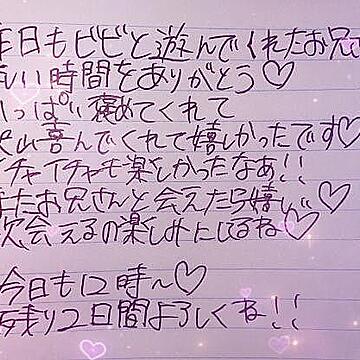 日もビビと遊んでくれたお兄
しい時間をありがとう♡
いっぱい褒めてくれて
沢山喜んでくれて嬉しかったです♡
イチャイチャも楽しかったなあ!!
またお兄さんと会えたら嬉しい♡
次会えるの楽しみにしるね♡
今日も12時〜♡
残り2日間よろしくね!!